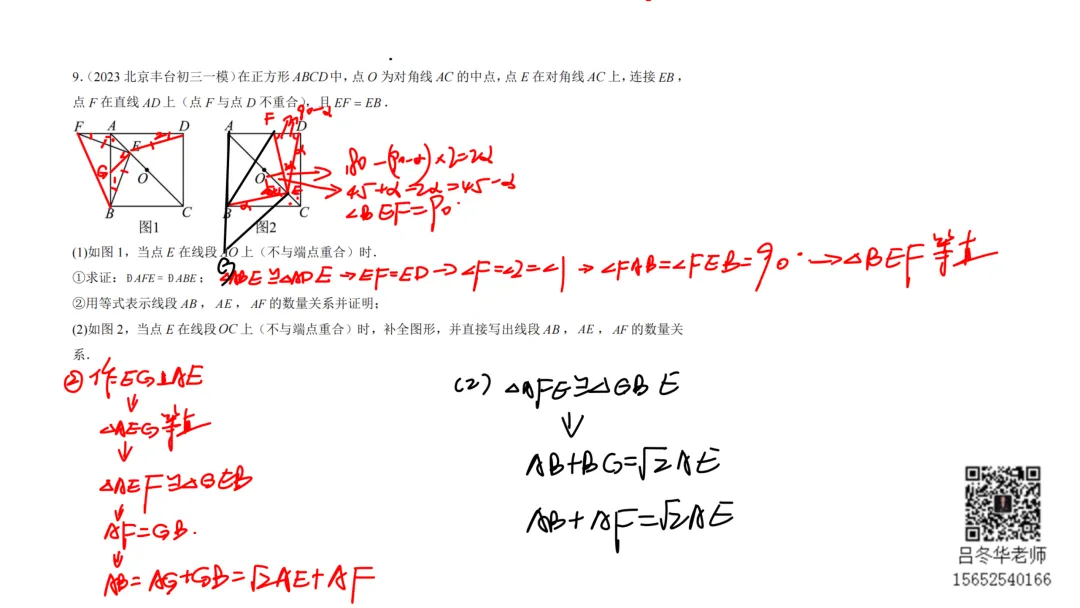 9.（2023 北京丰台初三一模）在正方形 ABCD 中，点 O 为对角线 AC 的中点，点 E 在对角线 AC 上，连接 EB，
点 F 在直线 AD 上（点 F 与点 D 不重合），且 EF = EB．
F A D
E
G
O
B C
图1
A F D
90-α
α
O
E
B α C
图2
180-(90-α)×2=2α
45+α=2α=45-α
∠BEF=90°
(1)如图 1，当点 E 在线段 AO 上（不与端点重合）时．
G
①求证：ÐAFE = ÐABE；
△ABE≌△ADE→EF=ED→∠F=∠2=∠1→∠FAB=∠FEB=90°→△BEF等直
②用等式表示线段 AB，AE，AF 的数量关系并证明；
(2)如图 2，当点 E 在线段 OC 上（不与端点重合）时，补全图形，并直接写出线段 AB，AE，AF 的数量关
系．
② 作EG⊥AE
↓
△AEG等直
↓
△AEF≌△GEB
↓
AF=GB.
↓
AB=AG+GB=√2AE+AF
(2) △AFE≌△GBE
↓
AB+BG=√2AE
AB+AF=√2AE
吕冬华老师
15652540166